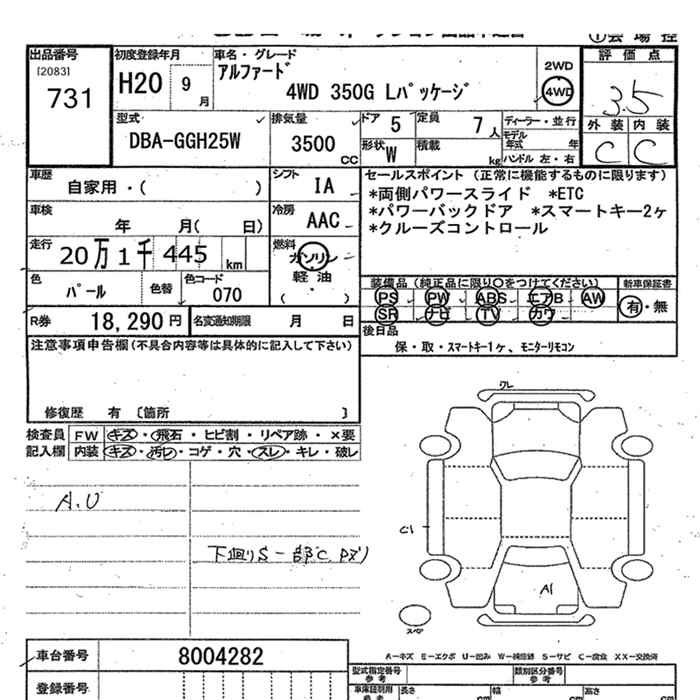 会場控
出品番号 初度登録年月 車名・グレード 評価点
[2083] アルファード 2WD
731 H20 9月 4WD 350G Lパッケージ 4WD 3.5
型式 排気量 ドア 5 定員 7人 ディーラー・並行 外装 内装
DBA-GGH25W 3500cc モデル年式 年 C C
形状 W 積載 kg ハンドル 左・右
車歴 シフト セールスポイント (正常に機能するものに限ります)
自家用・( ) IA *両側パワースライド *ETC
車検 冷房 *パワーバックドア *スマートキー2ヶ
年 月( 日) AAC *クルーズコントロール
走行 20万1千445km 燃料 ガソリン
軽油
( )
色 パール 色替 色コード 070
装備品 (純正品に限り○をつけてください) 新車保証書
PS PW ABS エアB AW 有・無
SR ナビ TV カワ
R券 18,290円 名変通知期限 月 日
後日品
注意事項申告欄(不具合内容等は具体的に記入して下さい)
保・取・スマートキー1ヶ、モニターリモコン
修復歴 有 〔箇所 〕
検査員 FW キズ・飛石・ヒビ割・リペア跡・×要
記入欄 内装 キズ・汚レ・コゲ・穴・スレ・キレ・破レ
ワレ
A.U
C1
下廻りS 一部C
A1
スペア
A−キズ E−エクボ U−凹み W−補修跡 S−サビ C−腐食 XX−交換済
車台番号 8004282
型式指定番号 参考 類別区分番号 参考
登録番号 長さ cm 幅 cm 高さ cm